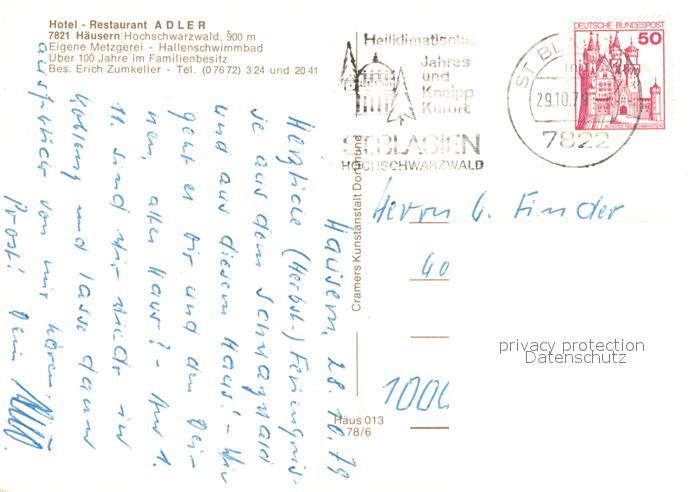 Hotel - Restaurant ADLER
7821 Häusern/Hochschwarzwald, 900 m
Eigene Metzgerei - Hallenschwimmbad
Über 100 Jahre im Familienbesitz
Bes. Erich Zumkeller - Tel. (07672) 324 und 2041
Heilklimatische
Jahres
und
Kneipp
Kurort
ST. BLASIEN
HOCHSCHWARZWALD
ST. BLA
29.10.79
7822
DEUTSCHE BUNDESPOST
50
Häusern, 28.10.79
Herzliche (Herbst-) Feriengrüs-
se aus dem Schwarzwald
und aus diesem Haus! - Wie
geht es Dir und den Dei-
nen, altes Haus? - Am 1.
11. sind wir wieder in
Koblenz und lasse dann
ausführlich von mir hören.
Prost! Dein
Cramers Kunstanstalt Dortmund
Herrn G. Finder
40
1000
Häus 013
78/6
privacy protection
Datenschutz